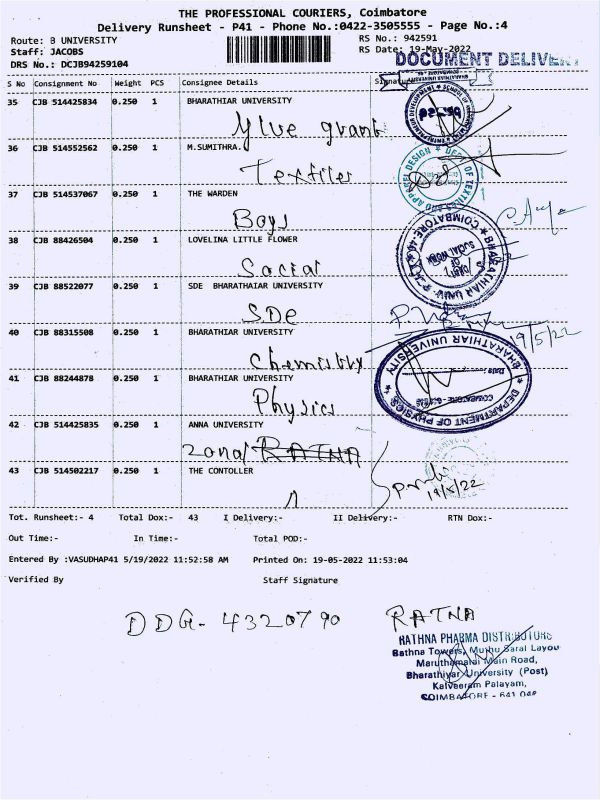 THE PROFESSIONAL COURIERS, Coimbatore
Delivery Runsheet - P41 - Phone No.:0422-3505555 - Page No.:4
Route: B UNIVERSITY
RS No.: 942591
Staff: JACOBS
RS Date: 19-May-2022
DRS No.: DCJB94259104
DOCUMENT DELIVERY
S No Consignment No Weight PCS Consignee Details Signature
35 CJB 514425834 0.250 1 BHARATHIAR UNIVERSITY
grant
36 CJB 514552562 0.250 1 M.SUMITHRA.
Textiles
37 CJB 514537067 0.250 1 THE WARDEN
Boys
38 CJB 88426504 0.250 1 LOVELINA LITTLE FLOWER
Social
39 CJB 88522077 0.250 1 SDE BHARATHAIAR UNIVERSITY
SDe
19/5/22
40 CJB 88315508 0.250 1 BHARATHIAR UNIVERSITY
Chemistry
41 CJB 88244878 0.250 1 BHARATHIAR UNIVERSITY
Physics
BHARATHIAR UNIVERSITY
DEPARTMENT OF PHYSICS
42 CJB 514425835 0.250 1 ANNA UNIVERSITY
RATNA
43 CJB 514502217 0.250 1 THE CONTOLLER
19/5/22
Tot. Runsheet:- 4 Total Dox:- 43 I Delivery:- II Delivery:- RTN Dox:-
Out Time:- In Time:- Total POD:-
Entered By :VASUDHAP41 5/19/2022 11:52:58 AM Printed On: 19-05-2022 11:53:04
Verified By Staff Signature
DDG- 4320790
RATNA
RATHNA PHARMA DISTRIBUTORS
Rathna Towers, Muthu Saral Layou
Maruthamalai Main Road,
Bharathiyar University (Post)
Kalveeram Palayam,
COIMBATORE - 641 046